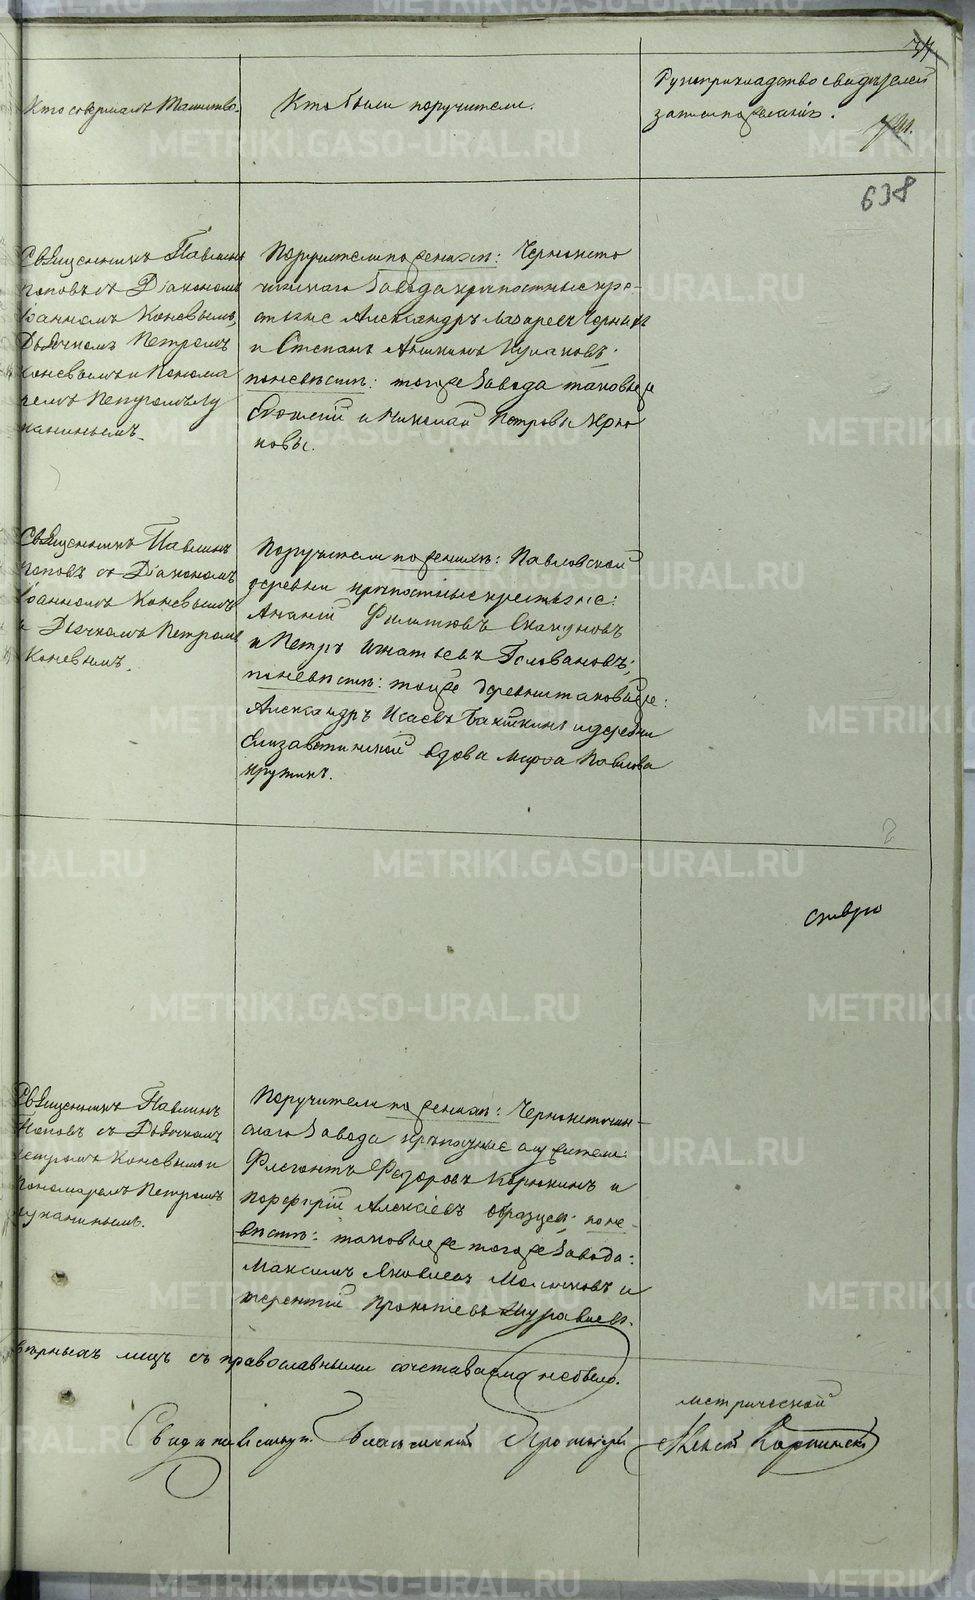 638
Кто совершалъ Таинство.
Кто были поручители.
Рукоприкладство свидѣтелей
записи по желанію.
Священникъ Павлинъ
Поповъ съ Діакономъ
Іоанномъ Коневымъ,
Дьячкомъ Петромъ
Коневымъ и Понома
ремъ Петромъ Лу
канинымъ.
Поручители по женихѣ: Черноисто
чинскаго Завода крѣпостные кре-
стьяне Александръ Лазаревъ Черныхъ
и Степанъ
по невѣстѣ: тогоже Завода таковые же
и Николай Петровы Крю
ковы.
Священникъ Павлинъ
Поповъ съ Діакономъ
Іоанномъ Коневымъ
и Дьячкомъ Петромъ
Коневымъ.
Поручители по женихѣ: Павловской
деревни крѣпостные крестьяне:
Ананій Филиповъ
и Петръ Игнатьевъ Головановъ;
по невѣстѣ: тойже деревни таковые же:
Александръ Исаевъ и деревни
Елизаветинской вдова Марфа Павлова
Священникъ Павлинъ
Поповъ съ Дьячкомъ
Петромъ Коневымъ и
Пономаремъ Петромъ
Луканинымъ.
Поручители по женихѣ: Черноисточин-
скаго Завода служители:
Флегонтъ Федоровъ Карюкинъ и
Порфирій Алексѣевъ Образцовъ; по не-
вѣстѣ: таковые же тогоже Завода:
Максимъ Яковлевъ Молочковъ и
Терентій Прокопьевъ Журавлевъ.
вѣрныхъ лицъ съ православными сочетаваемо не было.
метрической
METRIKI.GASO-URAL.RU